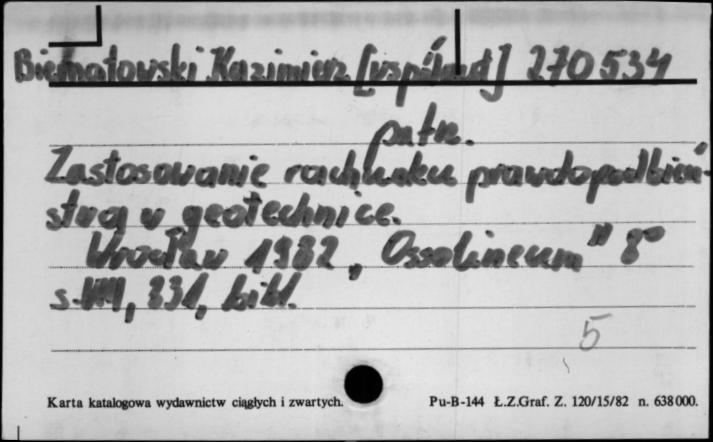 Biernatowski Kazimierz [współaut] 270 534
patrz.
Zastosowanie rachunku prawdopodobień-
stwa w geotechnice.
Wrocław 1982 „Ossolineum" 8°
s. VIII, 331, bibl.
5
Karta katalogowa wydawnictw ciągłych i zwartych. Pu-B-144 Ł.Z.Graf. Z. 120/15/82 n. 638 000.